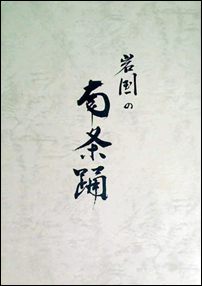 岩国の
南条踊